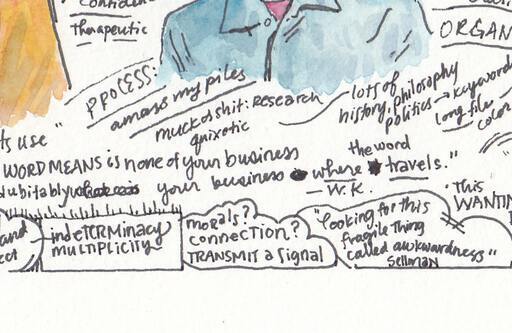 confident
Therapeutic
ORGAN
PROCESS:
amass my piles
muck o shit: research
quixotic
lots of
history, philosophy
politics → keywords
long file
color
ts use "
WORD MEANS is none of your business
dubitably your business where the word travels."
— W.K.
"This
WANTIN
and
ect
indeTERMINACY
MULTIPLICITY
morals?
connection?
TRANSMIT a signal
"looking for this
fragile thing
called awkwardness"
Sellman